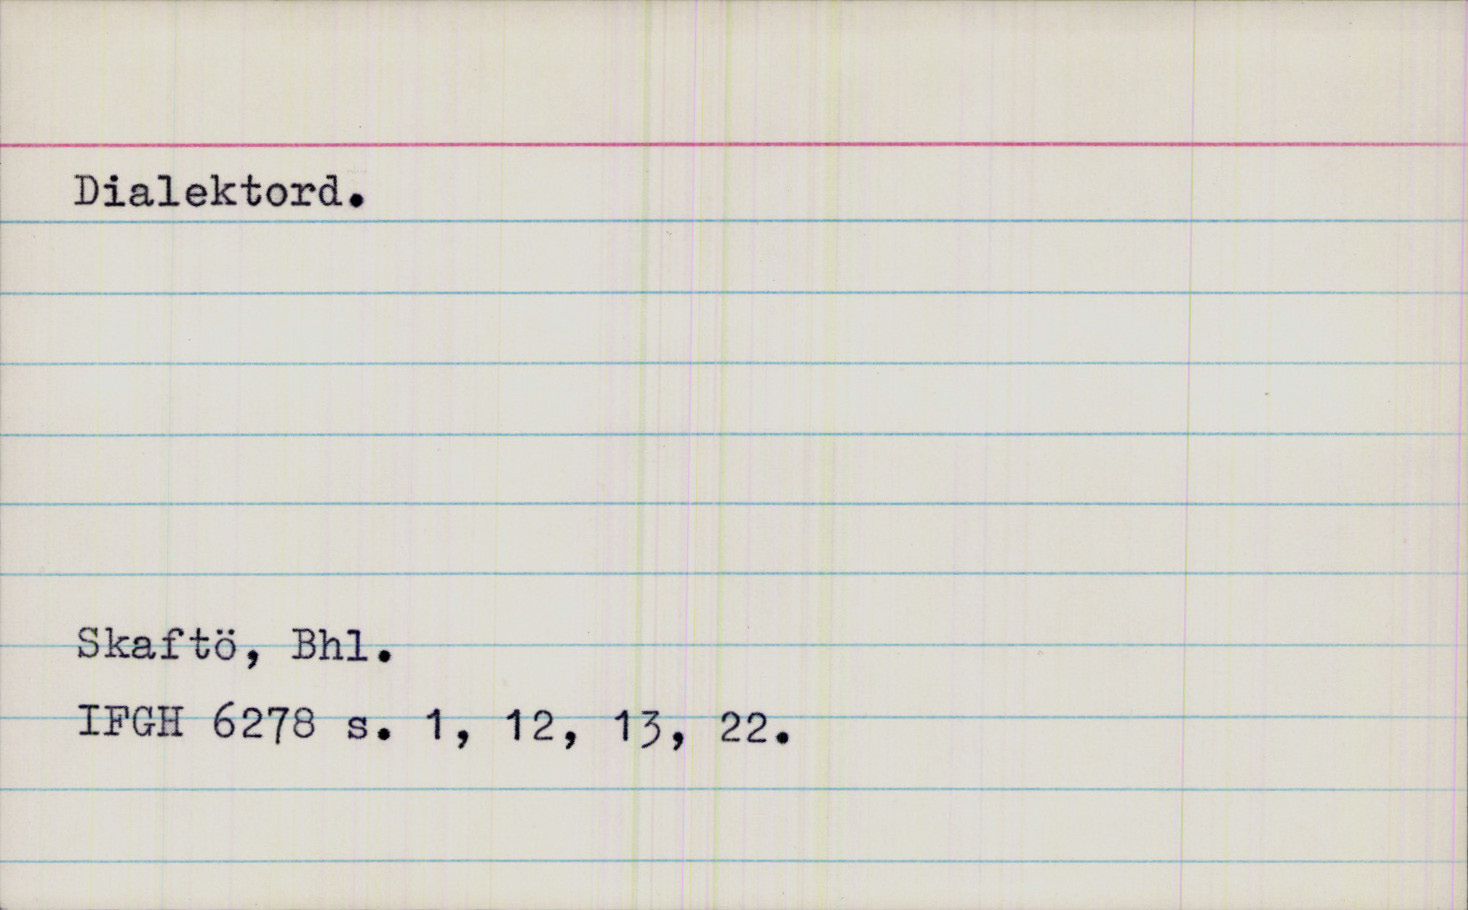 Dialektord.
Skaftö, Bhl.
IFGH 6278 s. 1, 12, 13, 22.